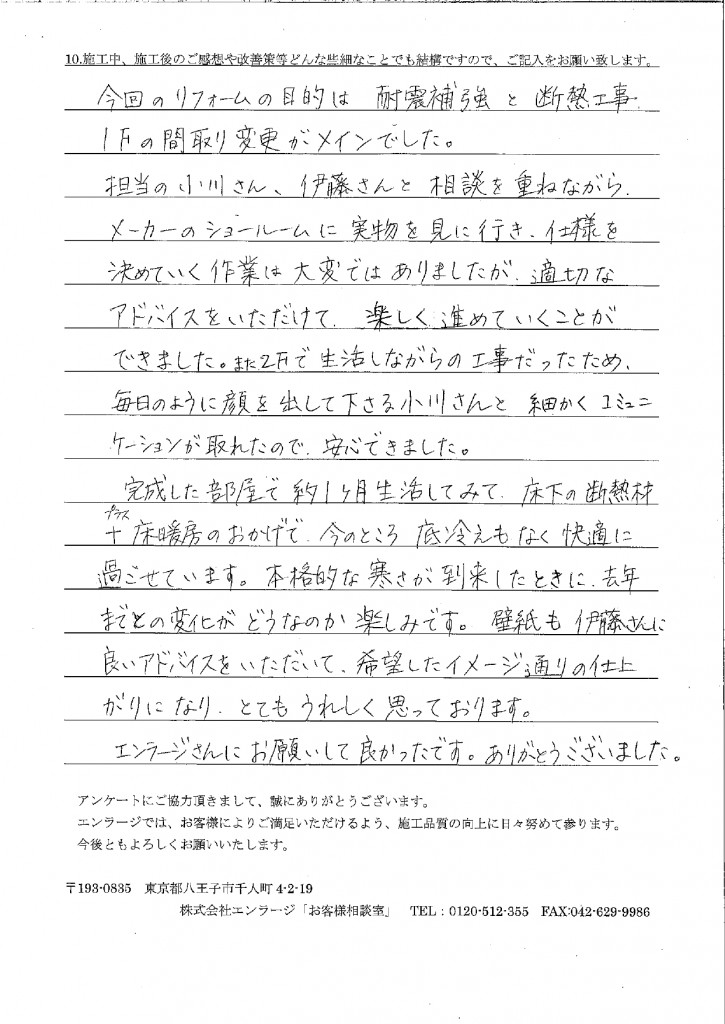 10.施工中、施工後のご感想や改善策等どんな些細なことでも結構ですので、ご記入をお願い致します。
今回のリフォームの目的は 耐震補強と断熱工事
1Fの間取り変更がメインでした。
担当の小川さん、伊藤さんと相談を重ねながら、
メーカーのショールームに実物を見に行き、仕様を
決めていく作業は大変ではありましたが、適切な
アドバイスをいただけて、楽しく進めていくことが
できました。また2Fで生活しながらの工事だったため、
毎日のように顔を出して下さる小川さんと 細かくコミュニ
ケーションが取れたので、安心できました。
完成した部屋で約1ヶ月生活してみて、床下の断熱材
プラス
+床暖房のおかげで、今のところ 底冷えもなく快適に
過ごせています。本格的な寒さが到来したときに、去年
までとの変化がどうなのか楽しみです。壁紙も伊藤さんに
良いアドバイスをいただいて、希望したイメージ通りの仕上
がりになり、とてもうれしく思っております。
エンラージさんにお願いして良かったです。ありがとうございました。
アンケートにご協力頂きまして、誠にありがとうございます。
エンラージでは、お客様によりご満足いただけるよう、施工品質の向上に日々努めて参ります。
今後ともよろしくお願いいたします。
〒193-0835 東京都八王子市千人町4-2-19
株式会社エンラージ「お客様相談室」 TEL:0120-512-355 FAX:042-629-9986